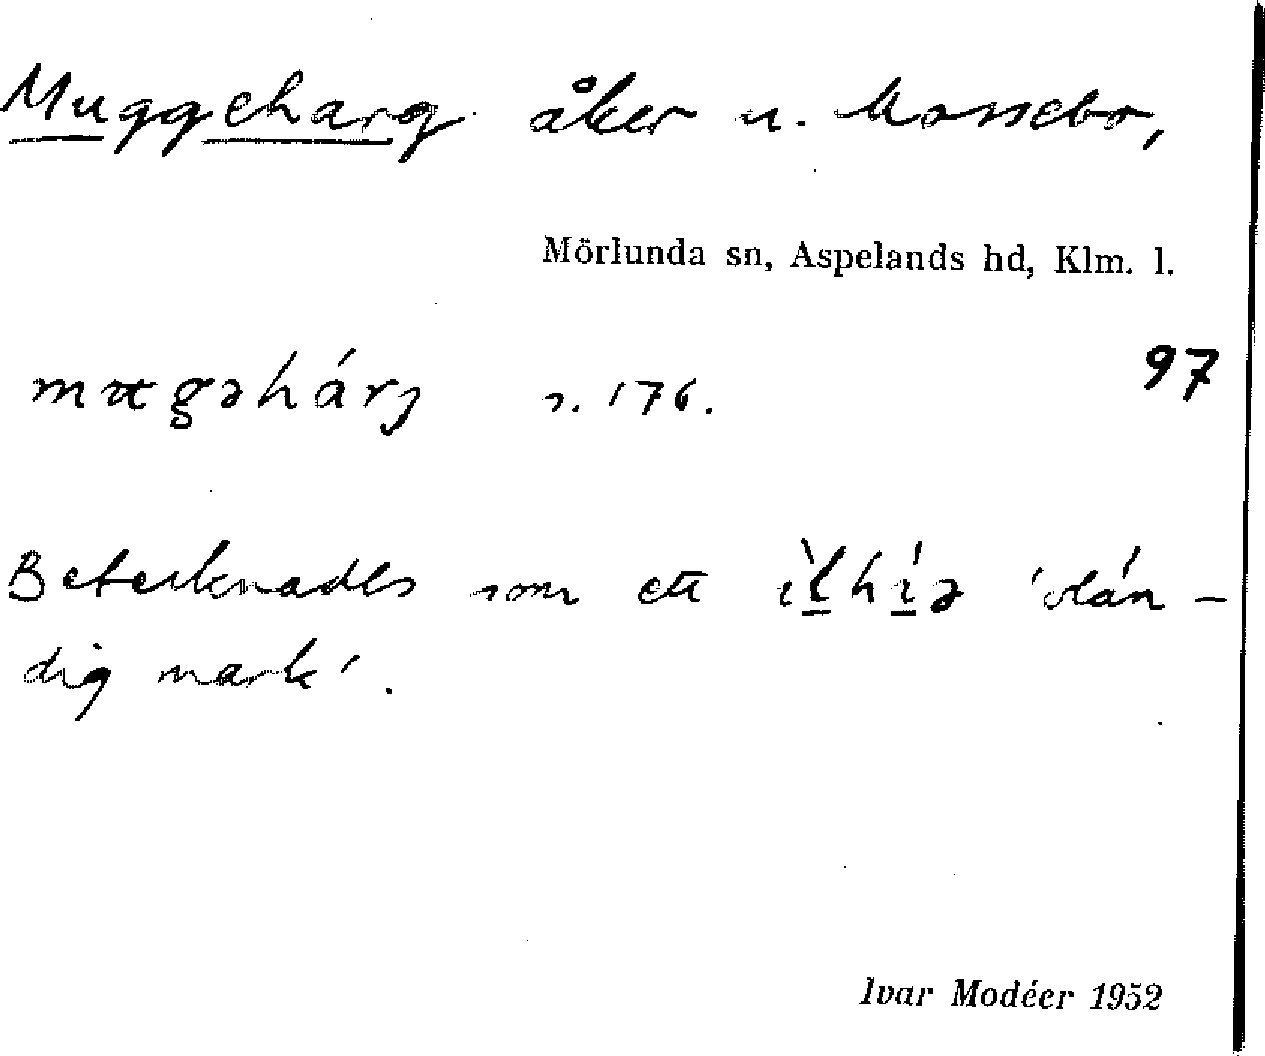 Muggeharg åker u. Mossebo,
Mörlunda sn, Aspelands hd, Klm. l.
97
s. 176.
Betecknades som ett ı̀lhı́ə 'olän-
dig mark'.
Ivar Modéer 1952